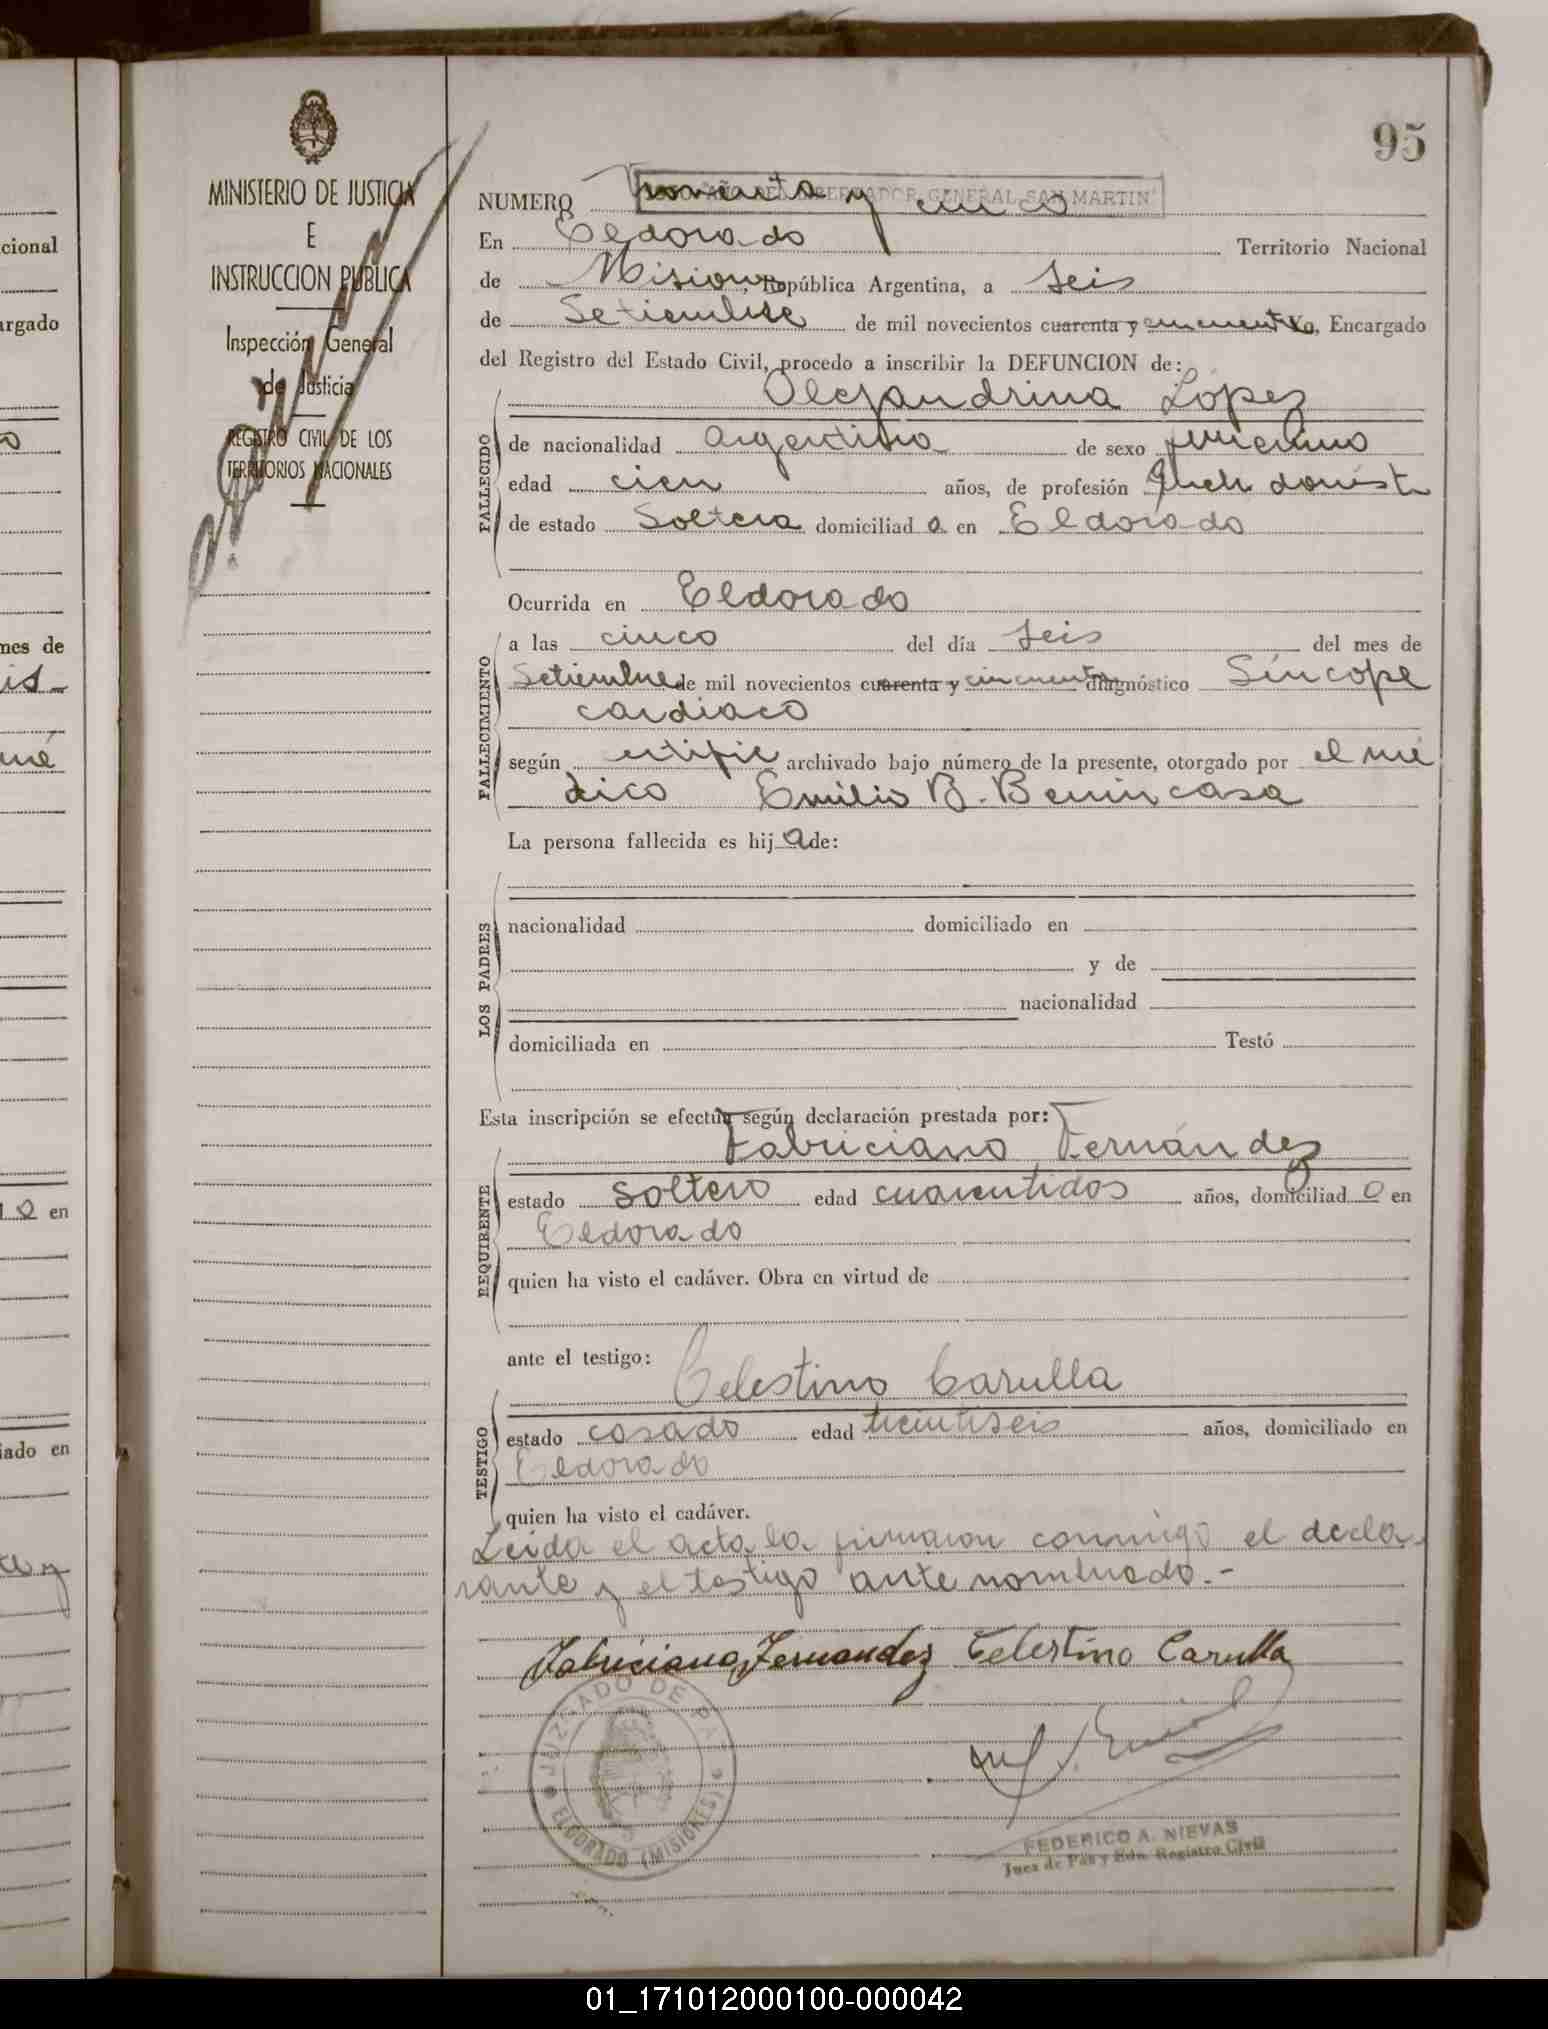 95
MINISTERIO DE JUSTICIA
E
INSTRUCCION PUBLICA
Inspección General
de Justicia
REGISTRO CIVIL DE LOS
TERRITORIOS NACIONALES
NUMERO Noventa y cinco
LIBERTADOR GENERAL SAN MARTIN"
En Eldorado Territorio Nacional
de Misiones, República Argentina, a seis
de Setiembre de mil novecientos cuarenta y cincuenta Yo, Encargado
del Registro del Estado Civil, procedo a inscribir la DEFUNCION de:
Alejandrina Lopez
FALLECIDO
de nacionalidad argentina de sexo femenino
edad cien años, de profesión
de estado Soltera domiciliad a en Eldorado
Ocurrida en Eldorado
FALLECIMIENTO
a las cinco del día seis del mes de
Setiembre de mil novecientos cuarenta y cincuenta diagnóstico Síncope
cardiaco
según certific archivado bajo número de la presente, otorgado por el mé
dico Emilio B. Benincasa
La persona fallecida es hij a de:
LOS PADRES
nacionalidad domiciliado en
y de
nacionalidad
domiciliada en Testó
Esta inscripción se efectúa según declaración prestada por:
Fabriciano Fernández
REQUIRENTE
estado soltero edad cuarentidos años, domiciliad o en
Eldorado
quien ha visto el cadáver. Obra en virtud de
ante el testigo:
Celestino Carulla
TESTIGO
estado casado edad treintiseis años, domiciliado en
Eldorado
quien ha visto el cadáver.
Leída el acta la firmaron conmigo el decla
rante y el testigo antenombrado.-
Fabriciano Fernandez Celestino Carulla
JUZGADO DE PAZ
ELDORADO (MISIONES)
FEDERICO A. NIEVAS
Juez de Paz y Edo. Registro Civil
cional
argado
mes de
1 a en
iado en
01_171012000100-000042